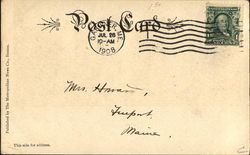 Post Card
ME.
JUL 26
10-AM
1908
Mrs. Howard,
Freeport,
Maine.
Published by The Metropolitan News Co., Boston.
This side for address.